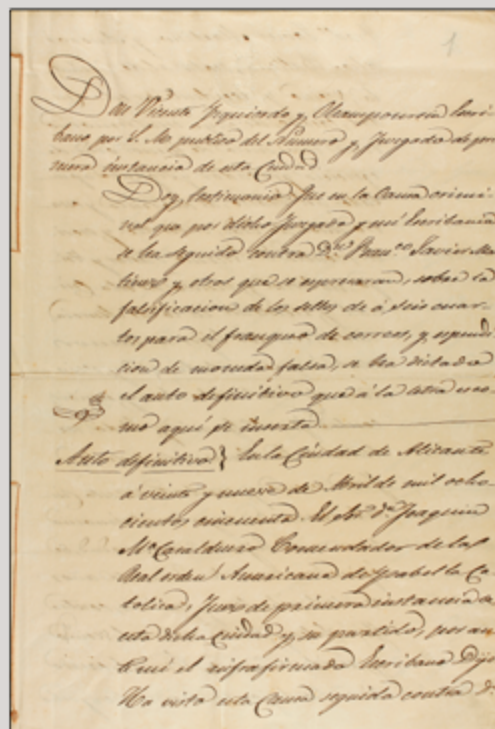 1
Don Vicente Izquierdo y Ocampo Escri-
bano por S. M. publico del Numero y Juzgado de pri-
mera instancia de esta Ciudad
Doy testimonio: Que en la Causa crimi-
nal que por dicho Juzgado y mi Escribania
se ha seguido contra Dn. Franco. Javier Ma
tinez y otros que se espresaran, sobre la
falsificacion de los sellos de á seis cuar-
tos para el franqueo de correos, y espendi
cion de moneda falsa, se ha dictado
el auto definitivo que á la letra co-
mo aqui se inserta
Auto definitivo } En la Ciudad de Alicante
á veinte y nueve de Abril de mil ocho-
cientos cincuenta. El Sor. Dn. Joaquin
Ma. Comendador de la
Real orden Americana de Ysabel la Ca
tolica, Juez de primera instancia de
esta dicha Ciudad y su partido, por an
te mi el infrafirmado Escribano Dijo
Ha visto esta Causa seguida contra Dn.